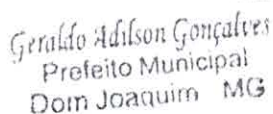 Geraldo Adilson Gonçalves
Prefeito Municipal
Dom Joaquim MG